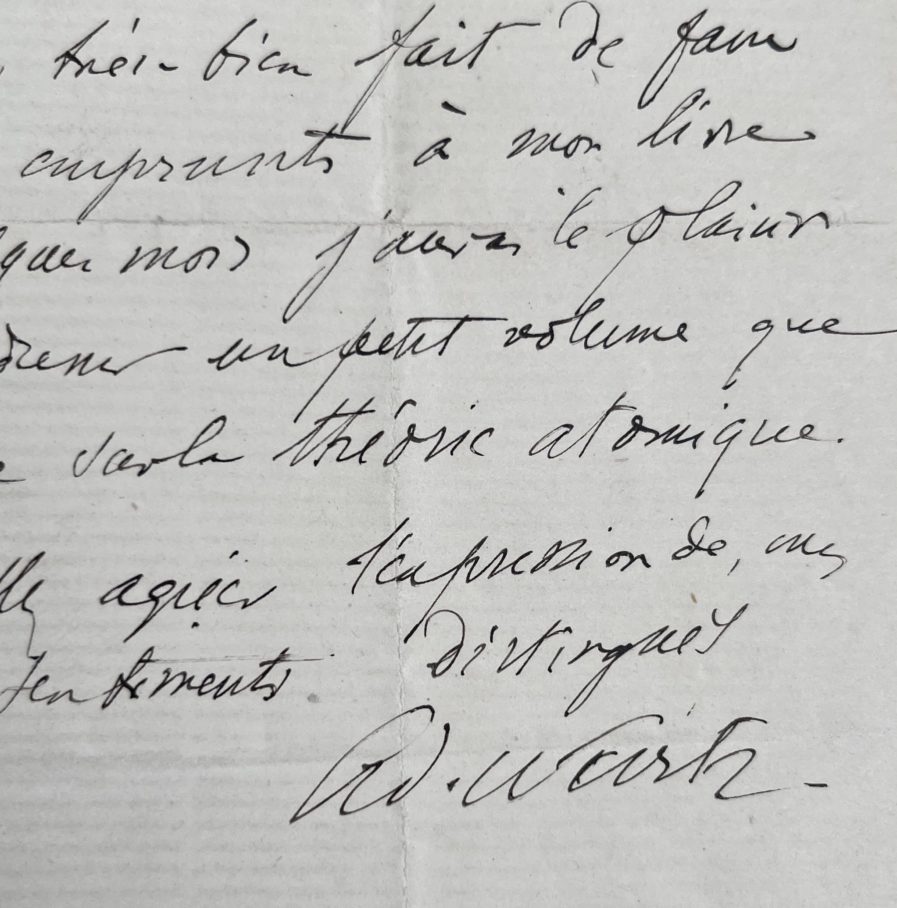 très-bien fait de faire
emprunts à mon livre
ques mois j'aurai le plaisir
dresser un petit volume que
sur la théorie atomique.
agréer l'expression de, mes
sentiments distingués
Ad. Wurtz